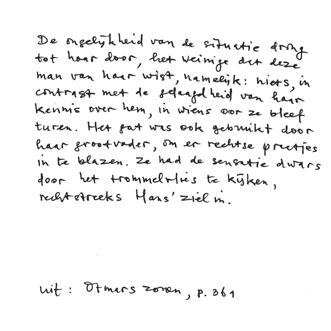 De ongelijkheid van de situatie drong
tot haar door, het weinige dat deze
man van haar wist, namelijk: niets, in
contrast met de gelaagdheid van haar
kennis over hem, in wiens oor ze bleef
turen. Het gat was ook gebruikt door
haar grootvader, om er rechtse praatjes
in te blazen. Ze had de sensatie dwars
door het trommelvlies te kijken,
rechtstreeks Hans' ziel in.
uit: Otmars zonen, p. 361